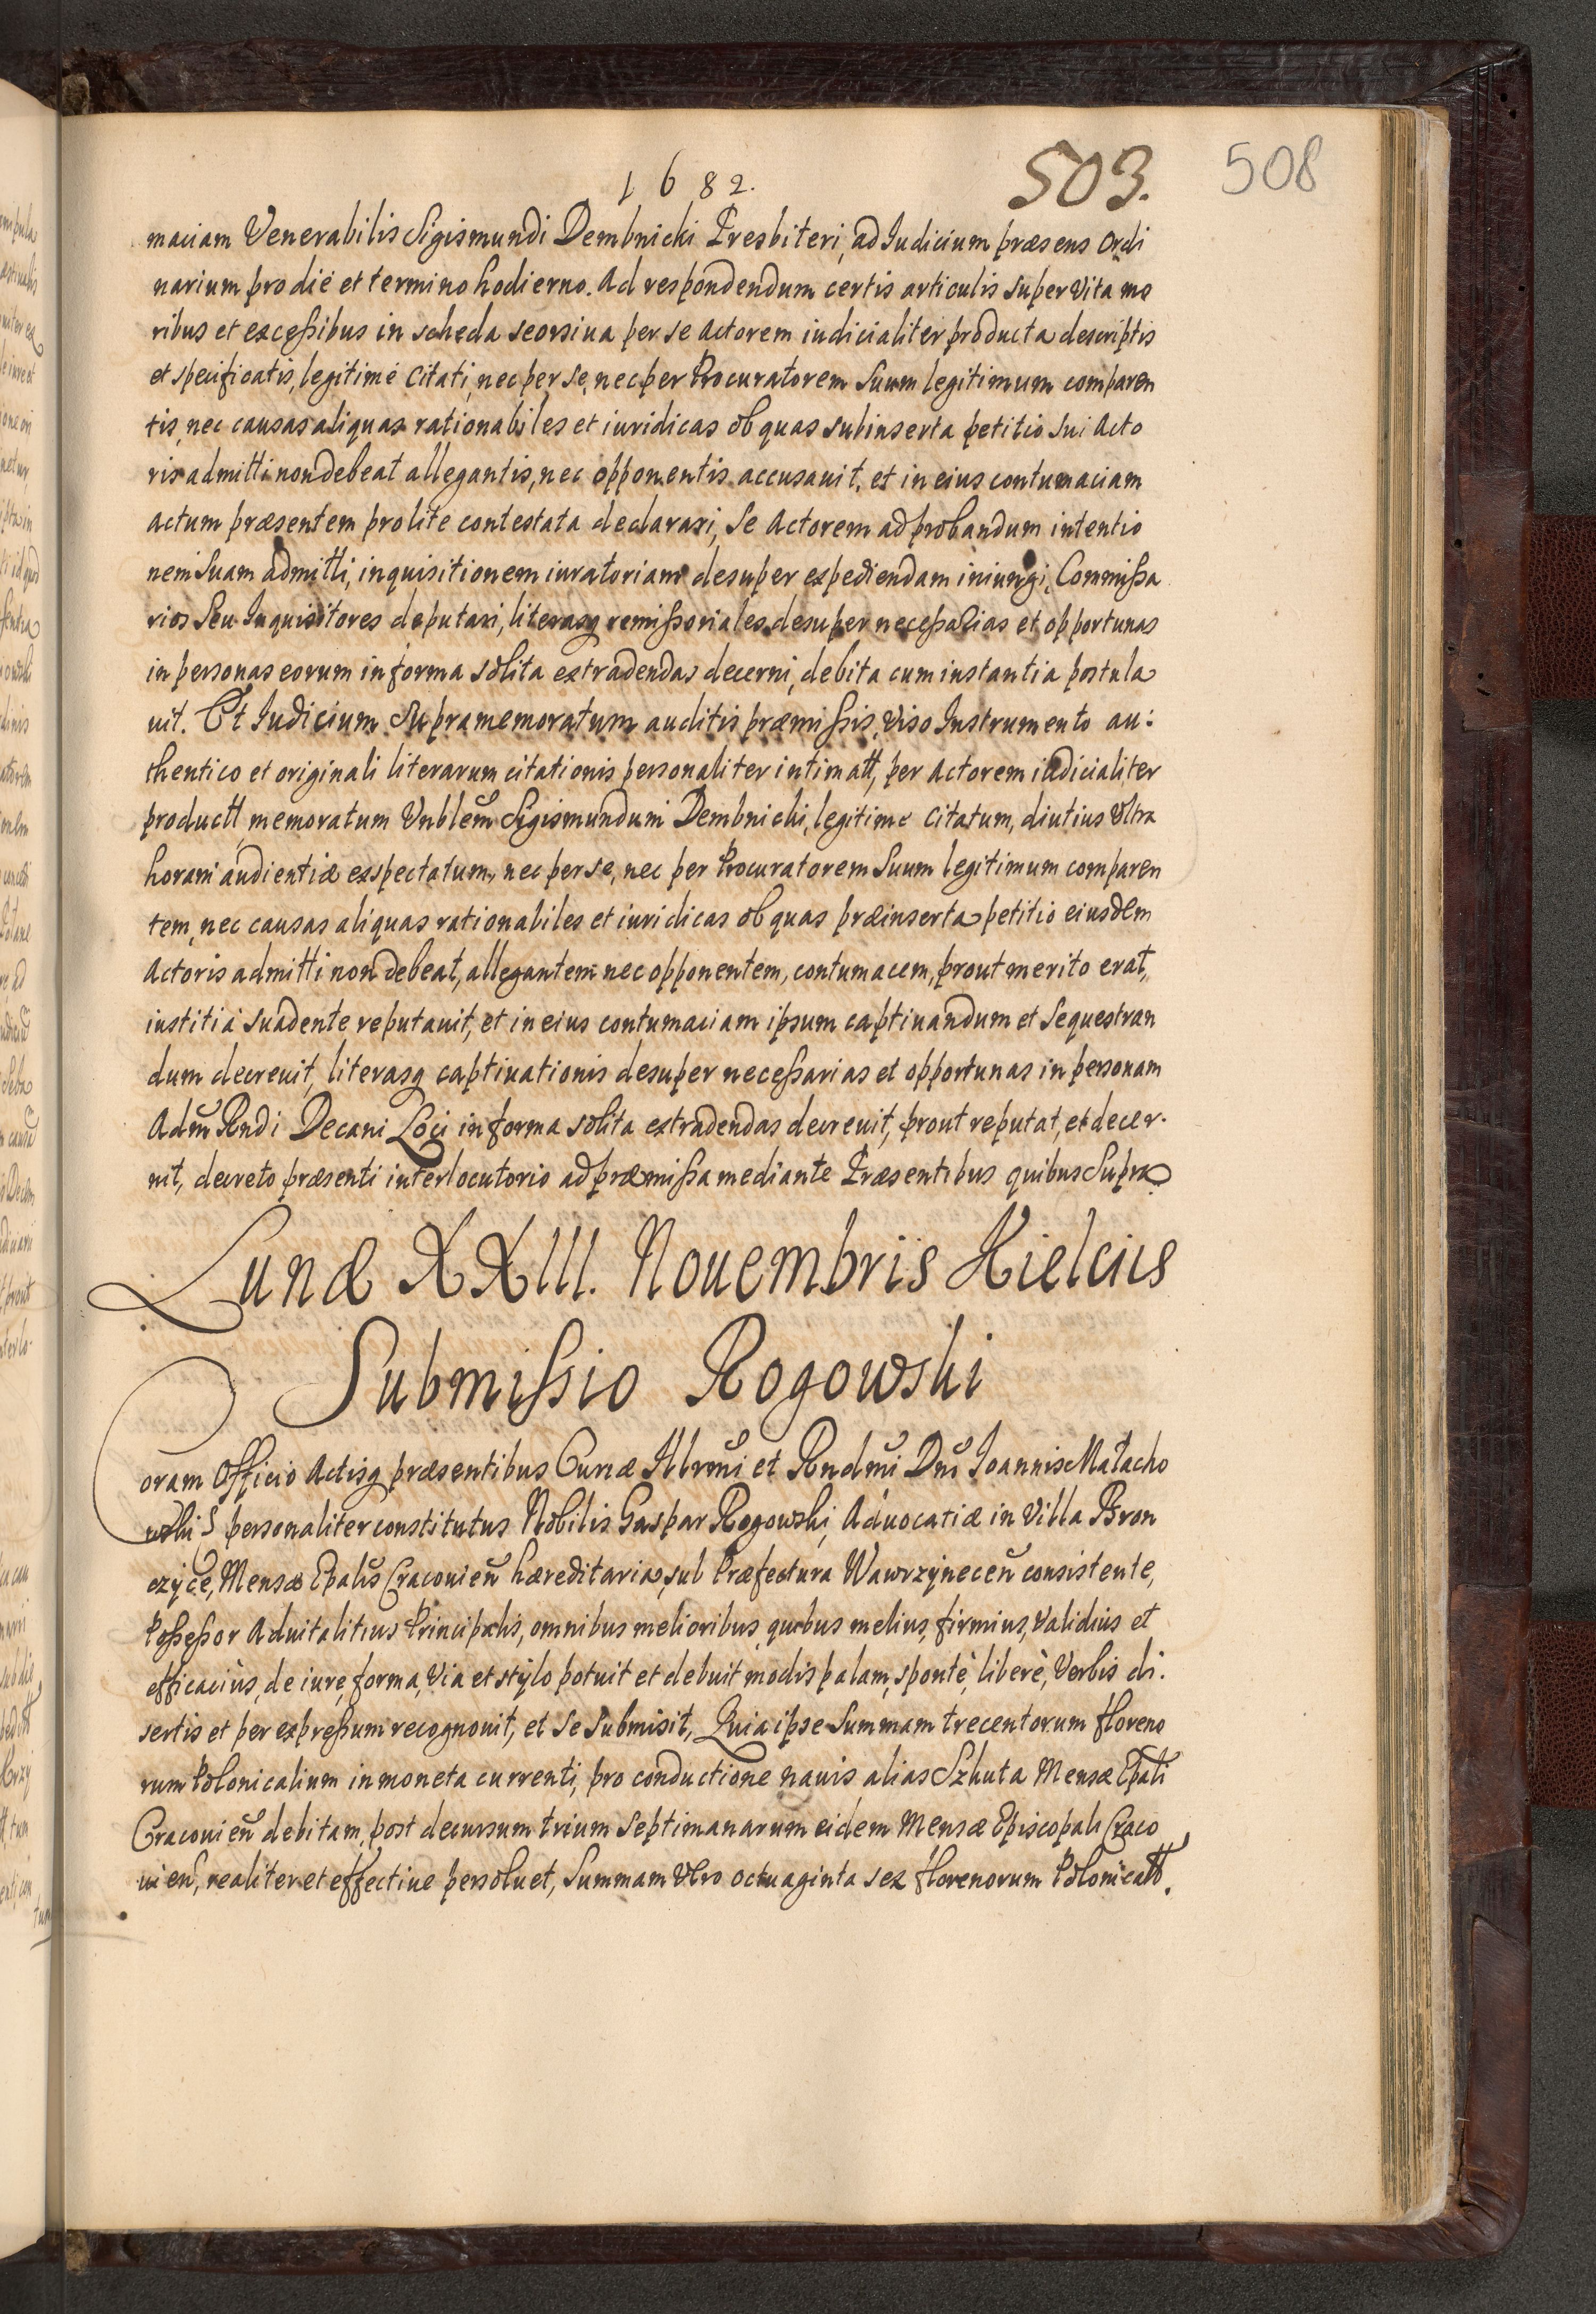 1682.
503.
508
maciam Venerabilis Sigismundi Dembnicki Presbiteri, ad Iudicium præsens Ordi
narium pro die et termino hodierno. Ad respondendum certis articulis super Vita mo
ribus et excessibus in scheda seorsiua per se Actorem iudicialiter producta descriptis
et specificatis, legitimé Citati, nec per se, nec per Procuratorem Suum legitimum comparen
tis, nec causas aliquas rationabiles et iuridicas ob quas subinserta petitio sui Acto
ris admitti non debeat allegantis, nec opponentis accusauit, et in eius contumaciam
Actum præsentem pro lite contestata declarari, Se Actorem ad probandum intentio
nem Suam admitti, inquisitionem iuratoriam desuper expediendam iniungi, Commissa
rios Seu Inquisitores deputari, literasq remissoriales desuper necessarias et opportunas
in personas eorum in forma solita extradendas decerni, debita cum instantia postula
uit. Et Iudicium Supramemoratum auditis præmissis, Viso Instrumento au:
thentico et originali literarum citationis personaliter intimatt, per Actorem iudicialiter
productt memoratum Vnblem Sigismundum Dembnicki, legitime Citatum, diutius Vltra
horam audientiæ exspectatum, nec per se, nec per Procuratorem Suum legitimum comparen
tem, nec causas aliquas rationabiles et iuridicas ob quas præinserta petitio eiusdem
Actoris admitti non debeat, allegantem nec opponentem, contumacem, prout merito erat,
iustitiá suadente reputauit, et in eius contumaciam ipsum captiuandum et Sequestran
dum decreuit, literasq captiuationis desuper necessarias et opportunas in personam
Adm Rndi Decani Loci in forma solita extradendas decreuit, prout reputat, et decer.
nit, decreto præsenti interlocutorio ad præmissa mediante Præsentibus quibus Supra
Lunæ XXIII. Nouembris Kielciis
Submissio Rogowski
Coram Officio Actisq præsentibus Curiæ Illrmi et Rndmi Dni Ioannis Małacho
wski personaliter constitutus Nobilis Gaspar Rogowski, Aduocatiæ in Villa Bron
czyce, Mensæ Epalis Cracouien hæreditaria, sub Præfectura Wawrzynecen consistente,
Possessor Aduitalitius Principalis, omnibus melioribus quibus melius, firmius, Validius et
efficaciùs, de iure, forma, Via et stylo potuit et debuit modis palam, spontè, liberè, Verbis di.
sertis et per expressum recognouit, et Se Submisit, Quia ipse Summam trecentorum floreno
rum Polonicalium in moneta currenti, pro conductione nauis alias Szkuta Mensæ Epali
Cracouien debitam, post decursum trium Septimanarum eidem Mensæ Episcopali Craco
uien, realiter et effectiue persoluet, Summam Vero octuaginta sex florenorum Polonicalt,